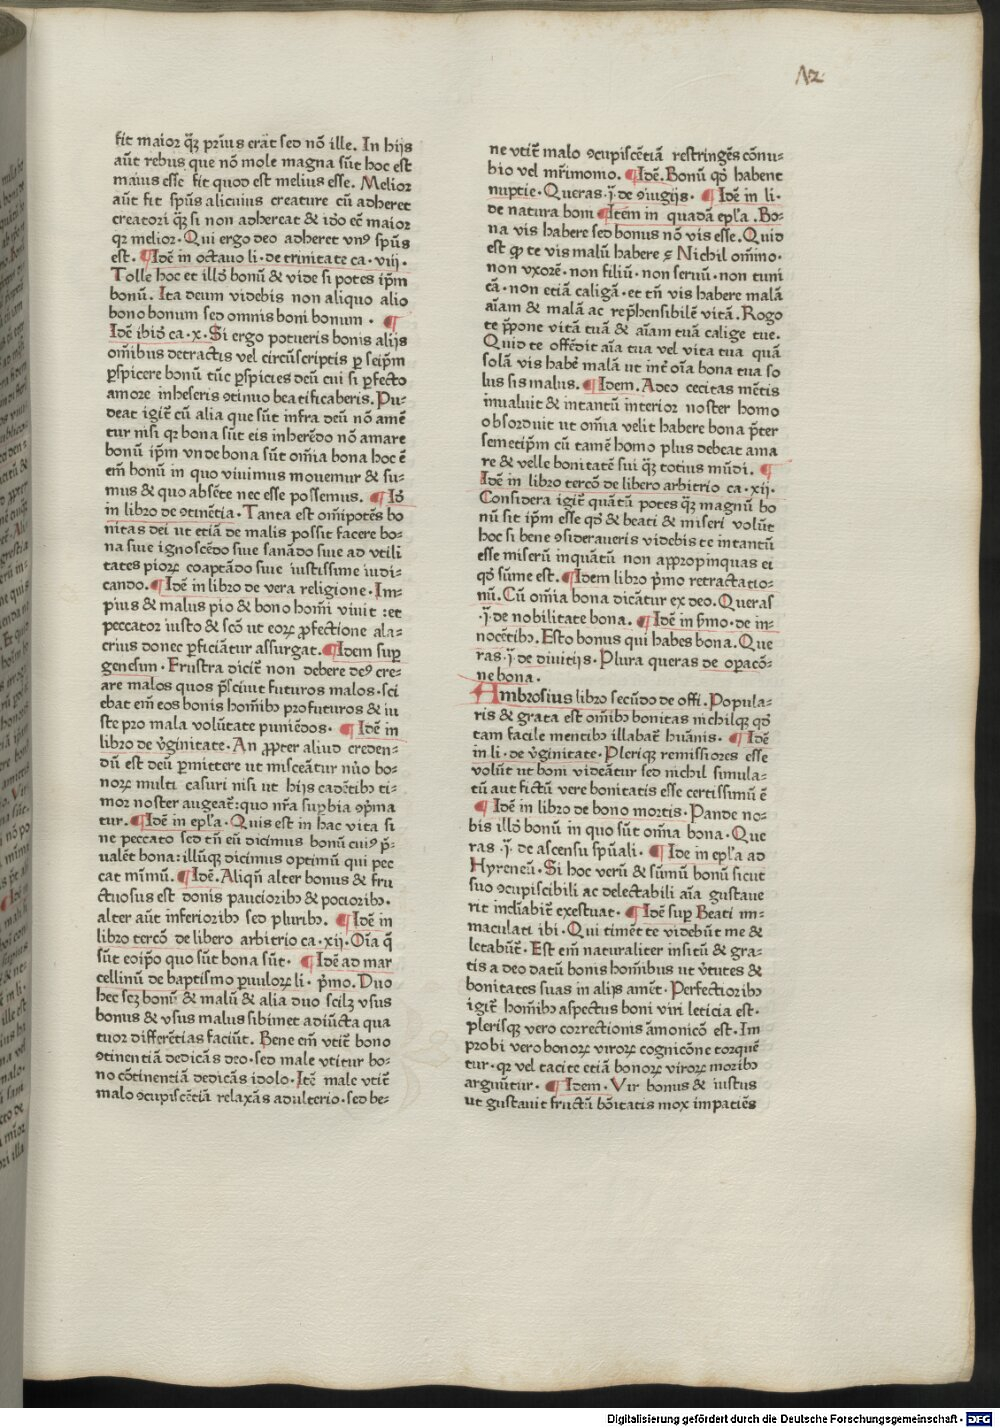 Λ2
fit maior q̄ꝫ prius erāt sed nō ille. In hijs
aūt rebus que nō mole magna sūt hoc est
maius esse fit quod est melius esse. Melior
aūt fit spūs alicuius creature cū adheret
creatori q̄ꝫ si non adhereat & id̄o eē maior
qꝛ melior. Qui ergo deo adheret vnꝰ spūs
est. ¶Idē in octauo li. de trinitate ca. viij.
Tolle hoc et illd̄ bonū & vide si potes ip̄m
bonū. Ita deum videbis non aliquo alio
bono bonum sed omnis boni bonum. ¶
Idē ibid̄ ca. x. Si ergo potueris bonis alijs
om̄ibus detractis vel circūscriptis ꝑ seip̄m
ꝑspicere bonū tūc ꝑspicies deū cui si ꝑfecto
amore inheseris ꝯtinuo beatificaberis. Pu⸗
deat igit̄ cū alia que sūt infra deū nō amē
tur nisi qꝛ bona sūt eis inherēdo nō amare
bonū ip̄m vnde bona sūt om̄ia bona hoc ē
em̄ bonū in quo viuimus mouemur & su⸗
mus & quo absēte nec esse possemus. ¶Id̄
in libro de ꝯtinētia. Tanta est om̄ipotēs bo
nitas dei ut etiā de malis possit facere bo⸗
na siue ignoscēdo siue sanādo siue ad vtili
tates pioꝝ coaptādo siue iustissime iudi⸗
cando. ¶Idē in libro de vera religione. Im⸗
pius & malus pio & bono hom̄i viuit : et
peccator iusto & scō ut eoꝝ ꝓfectione ala⸗
crius donec ꝑficiātur assurgat. ¶Idem sup̄
genesim. Frustra dicit̄ non debere deꝰ cre⸗
are malos quos p̄sciuit futuros malos. sci
ebat em̄ eos bonis hom̄ibꝫ profuturos & iu
ste pro mala volūtate puniēdos. ¶Idē in
libro de v̄ginitate. An ꝓpter aliud creden⸗
dū est deū ꝑmittere ut misceātur nūo bo⸗
noꝝ multi casuri nisi ut hijs cadētibꝫ ti⸗
mor noster augeat̄: quo nr̄a supbia ꝯp̄ma
tur. ¶Idē in epl̄a. Quis est in hac vita si
ne peccato sed tn̄ eū dicimus bonū cuiꝰ p̄⸗
ualēt bona: illūqꝫ dicimus optimū qui pec
cat mīmū. ¶Idē. Aliqn̄ alter bonus & fru
ctuosus est donis paucioribꝫ & pocioribꝫ.
alter aūt inferioribꝫ sed pluribꝫ. ¶Idē in
libro tercō de libero arbitrio ca. xij. Oīa q̄
sūt eoip̄o quo sūt bona sūt. ¶Idē ad mar
cellinū de baptismo ꝑuuloꝝ li. p̄mo. Duo
hec scꝫ bonū & malū & alia duo scilꝫ vsus
bonus & vsus malus sibimet adiūcta qua
tuor differētias faciūt. Bene em̄ vtit̄ bono
ꝯtinentiā dedicās deo. sed male vtitur bo⸗
no cōtinentiā dedicās idolo. Itē male vtit̄
malo ꝯcupiscētiā relaxās adulterio. sed be⸗
ne vtit̄ malo ꝯcupiscētiā restringēs cōnu⸗
bio vel mr̄imomo. ¶Idē. Bonū qd̄ habent
nuptie. Queras .j̄. de ꝯiugijs. ¶Idē in li.
de natura boni ¶Item in quadā epl̄a. Bo⸗
na vis habere sed bonus nō vis esse. Quid
est ꝙ te vis malū habere ⁊ Nichil om̄ino.
non vxorē. non filiū. non seruū. non tuni
cā. non etiā caligā. et tn̄ vis habere malā
aīam & malā ac rep̄hensibilē vitā. Rogo
te p̄pone vitā tuā & aīam tuā calige tue.
Quid te offēdit aīa tua vel vita tua quā
solā vis habē malā ut int̄ oīa bona tua so
lus sis malus. ¶Idem. Adeo cecitas mētis
inualuit & intantū interior noster homo
obsorduit ut om̄ia velit habere bona p̄ter
semetip̄m cū tamē homo plus debeat ama
re & velle bonitatē sui q̄ꝫ totius mūdi. ¶
Idē in libro tercō de libero arbitrio ca. xij.
Considera igit̄ quātū potes q̄ꝫ magnū bo
nū sit ip̄m esse qd̄ & beati & miseri volūt
hoc si bene ꝯsideraueris videbis te intantū
esse miserū inquātū non appropinquas ei
qd̄ sūme est. ¶Idem libro p̄mo retractatio⸗
nū. Cū om̄ia bona dicātur ex deo. Queras
.j̄. de nobilitate bona. ¶Idē in ẜmo. de in⸗
nocētibꝫ. Esto bonus qui habes bona. Que
ras .j̄. de diuitijs. Plura queras de oꝑacō⸗
ne bona.
Ambrosius libro secūdo de offi. Popula⸗
ris & grata est om̄ibꝫ bonitas nichilqꝫ qd̄
tam facile mentibꝫ illabat̄ hūanis. ¶Idē
in li. de v̄ginitate. Pleriqꝫ remissiores esse
volūt ut boni videātur sed nichil simula⸗
tū aut fictū vere bonitatis esse certissimū ē
¶Idē in libro de bono mortis. Pande no⸗
bis illd̄ bonū in quo sūt om̄ia bona. Que
ras .j̄. de ascensu sp̄uali. ¶Ide in epl̄a ad
Hyreneū. Si hoc verū & sūmū bonū sicut
suo ꝯcupiscibili ac delectabili aīa gustaue
rit ind̄iabit̄ exestuat. ¶Idē sup̄ Beati im⸗
maculati ibi. Qui timēt te videbūt me &
letabūt̄. Est em̄ naturaliter insitū & gra⸗
tis a deo datū bonis hom̄ibus ut v̄tutes &
bonitates suas in alijs amēt. Perfectioribꝫ
igit̄ hom̄ibꝫ aspectus boni viri leticia est.
plerisqꝫ vero correctionis āmonicō est. Im
probi vero bonoꝝ viroꝝ cognicōne torquē
tur. qꝛ vel tacite etiā bonoꝝ viroꝝ moribꝫ
arguūtur. ¶Idem. Vir bonus & iustus
ut gustauit fructū bōitatis mox impatiēs
Digitalisierung gefördert durch die Deutsche Forschungsgemeinschaft - DFG